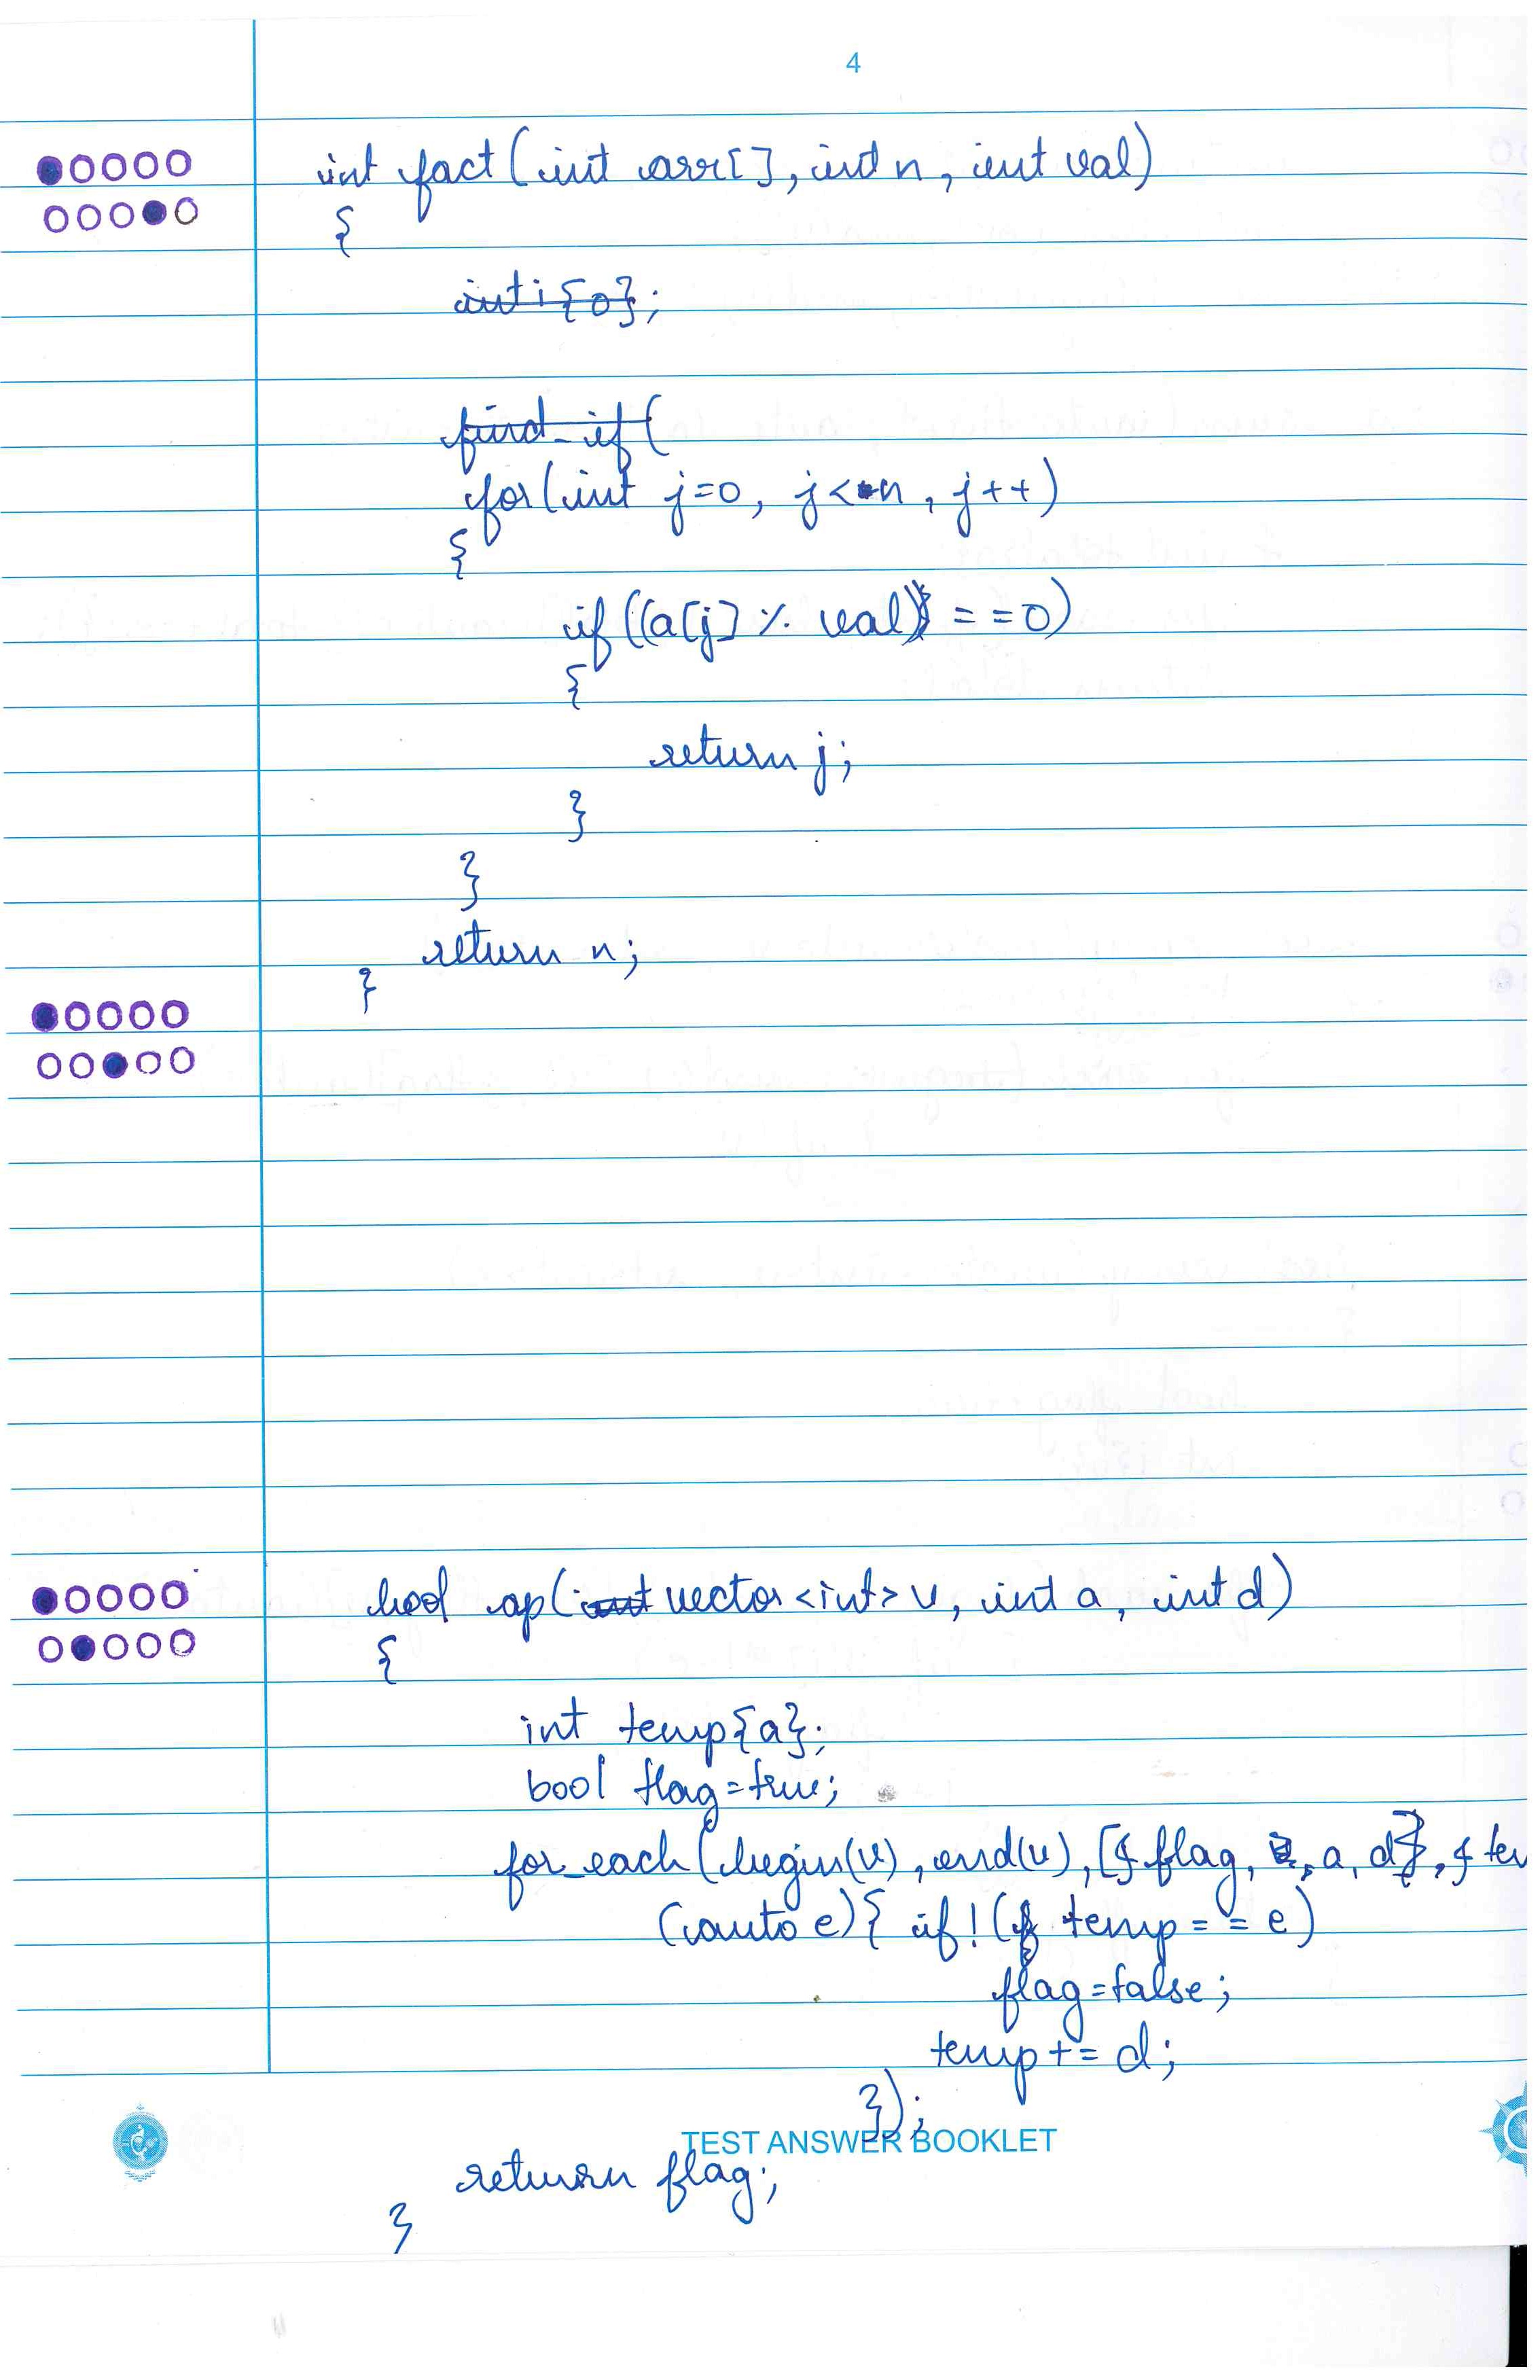 4
int fact(int arr[], int n, int val)
{
int i{0};
find_if(
for(int j=0, j<n, j++)
{
if((a[j] % val) ==0)
{
return j;
}
}
return n;
}
bool ap(int vector<int> v, int a, int d)
{
int temp{a};
bool flag=true;
for_each(begin(v), end(v), [& flag, a, d, &
(auto e){ if!( temp == e)
flag=false;
temp+= d;
});
TEST ANSWER BOOKLET
return flag;
}